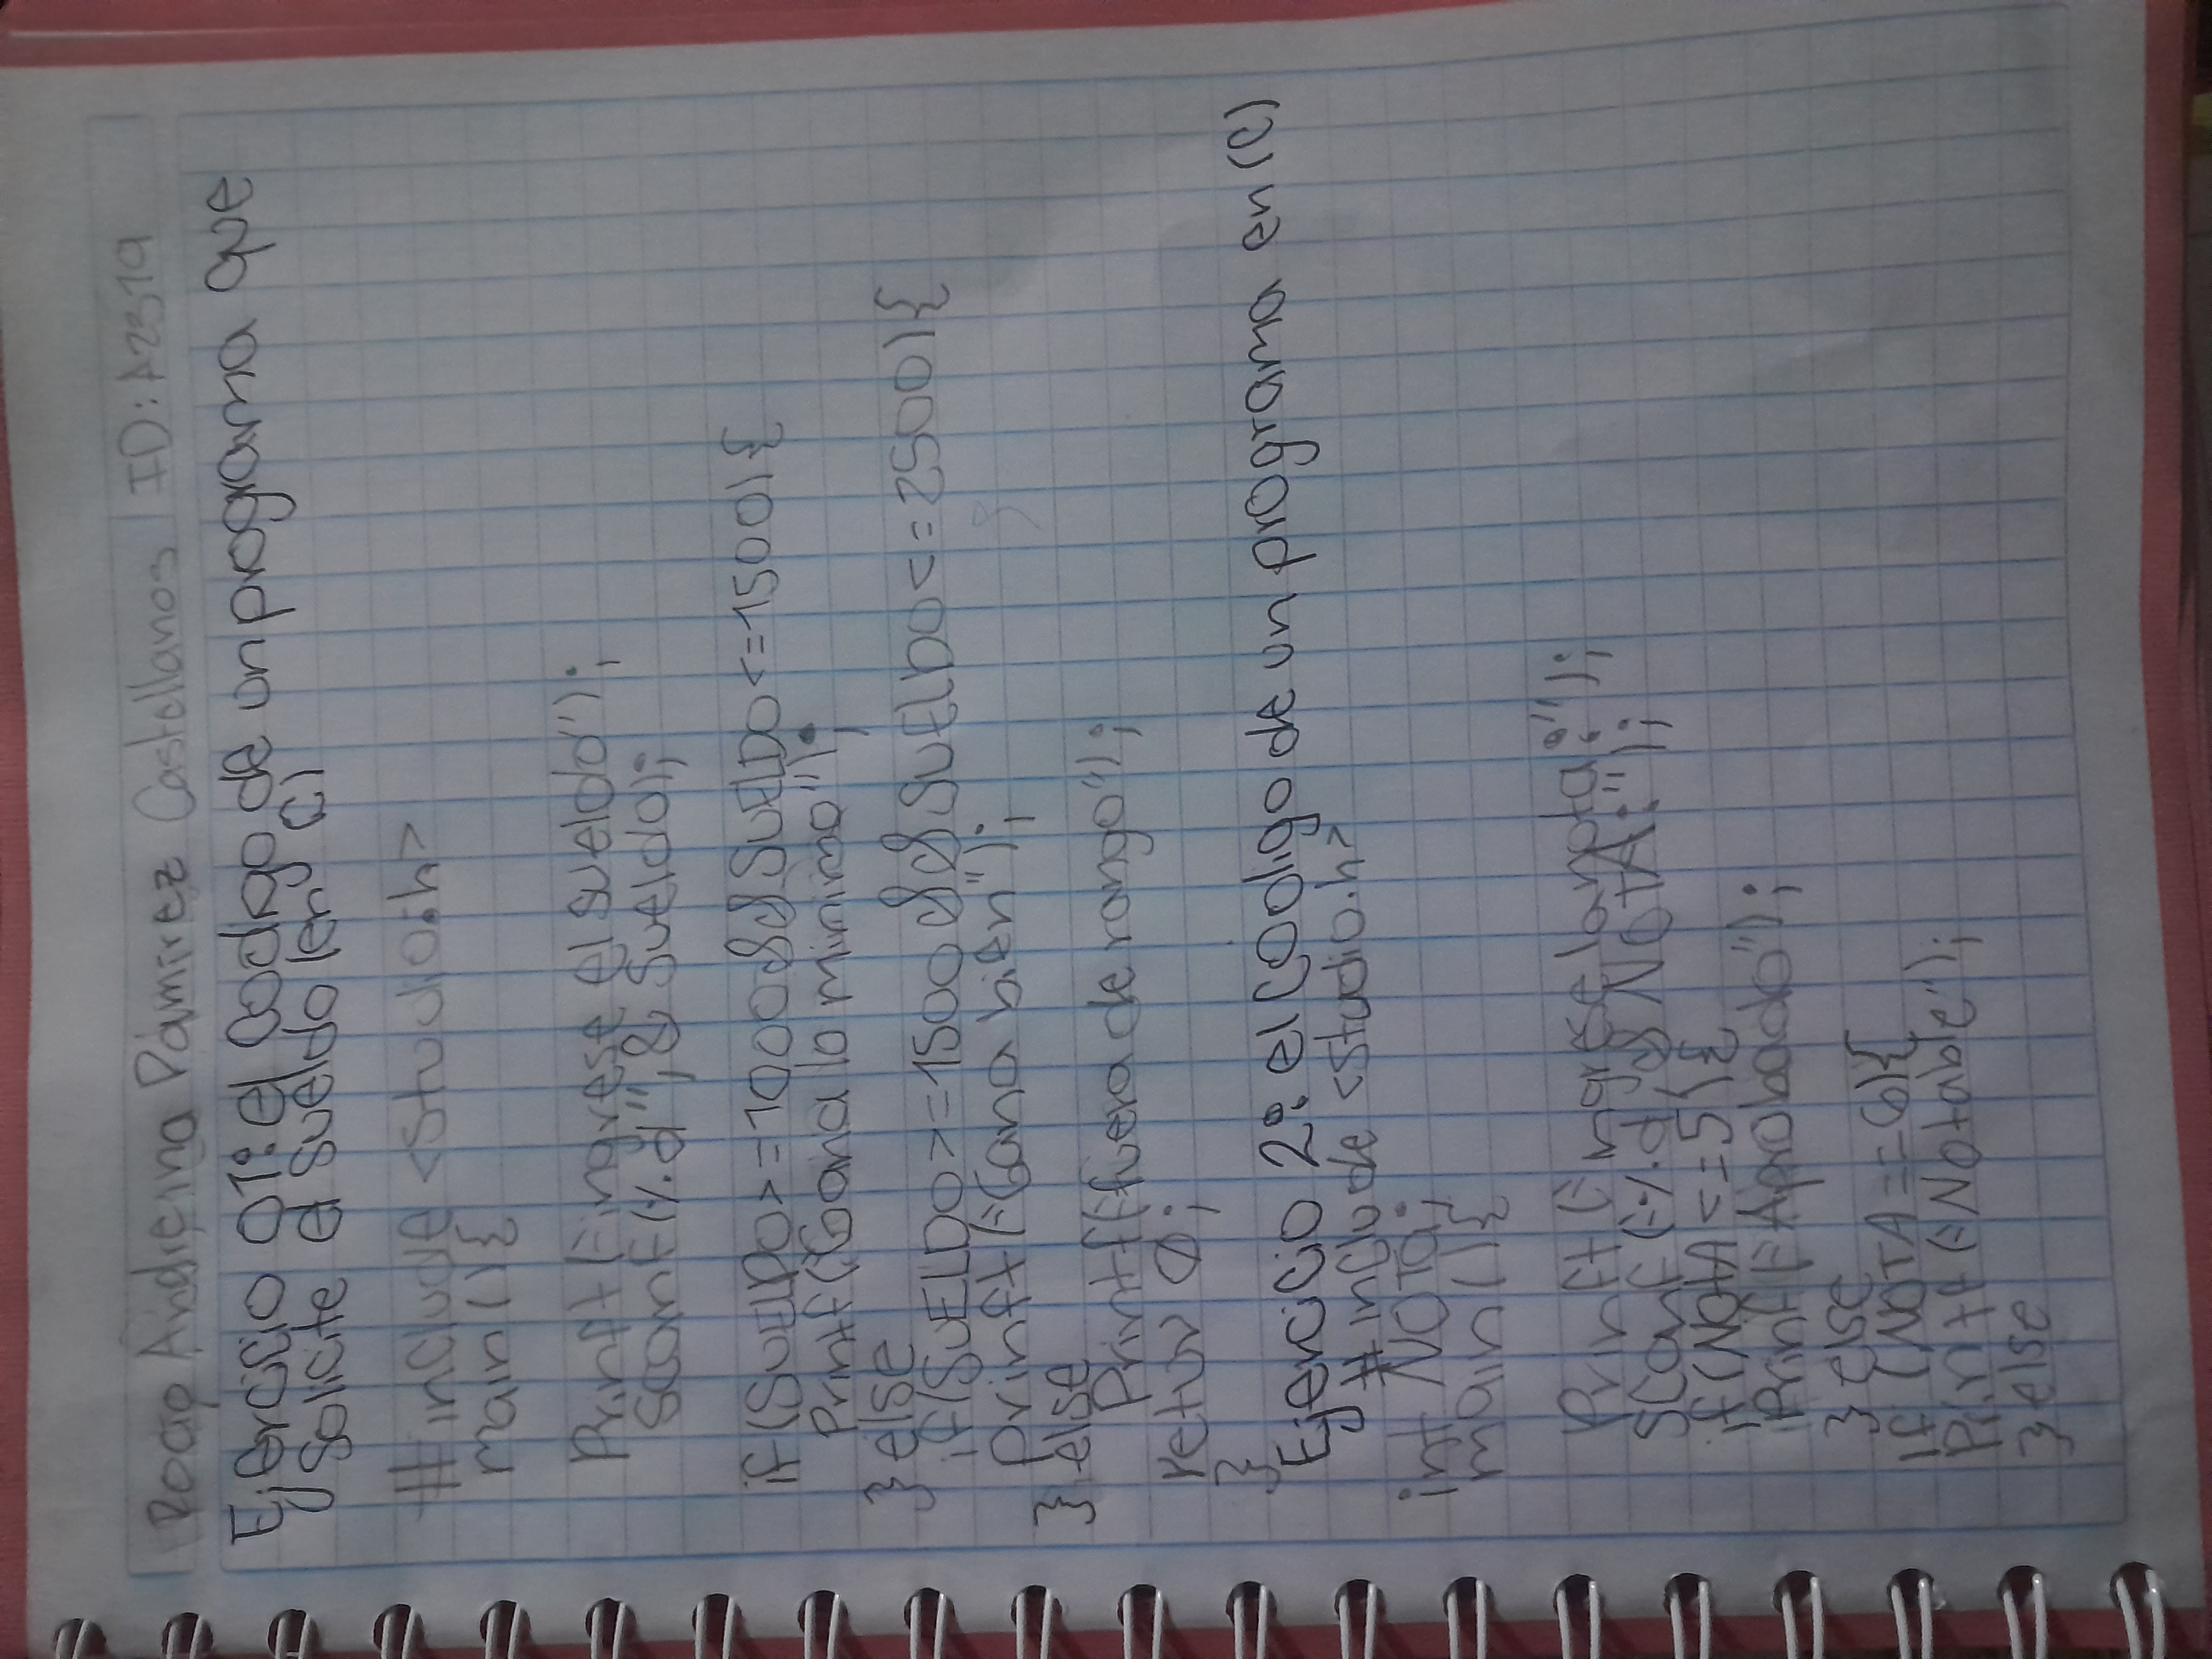 Andreina Ramirez Castellanos | ID: A23319
Ejercicio 01: el codigo de un programa que
solicite el sueldo (en C)
#include <studio.h>
main(){
Printf("ingrese el sueldo");
Scanf("%d",&Sueldo);
if(SUELDO>=1000&&SUELDO<=1500){
Printf("Gana lo minimo");
}else
if(SUELDO>=1500&&SUELDO<=2500){
Printf("Gana bien");
}else
Printf("fuera de rango");
retur 0;
}
Ejercicio 2: el codigo de un programa en (C)
#include <studio.h>
int NOTA;
main(){
Printf("ingrese la nota:");
Scanf("%d,& NOTA:");
if(NOTA<=5){
Printf("Aprobado");
}else
if(NOTA==6){
Printf("Notable");
}else